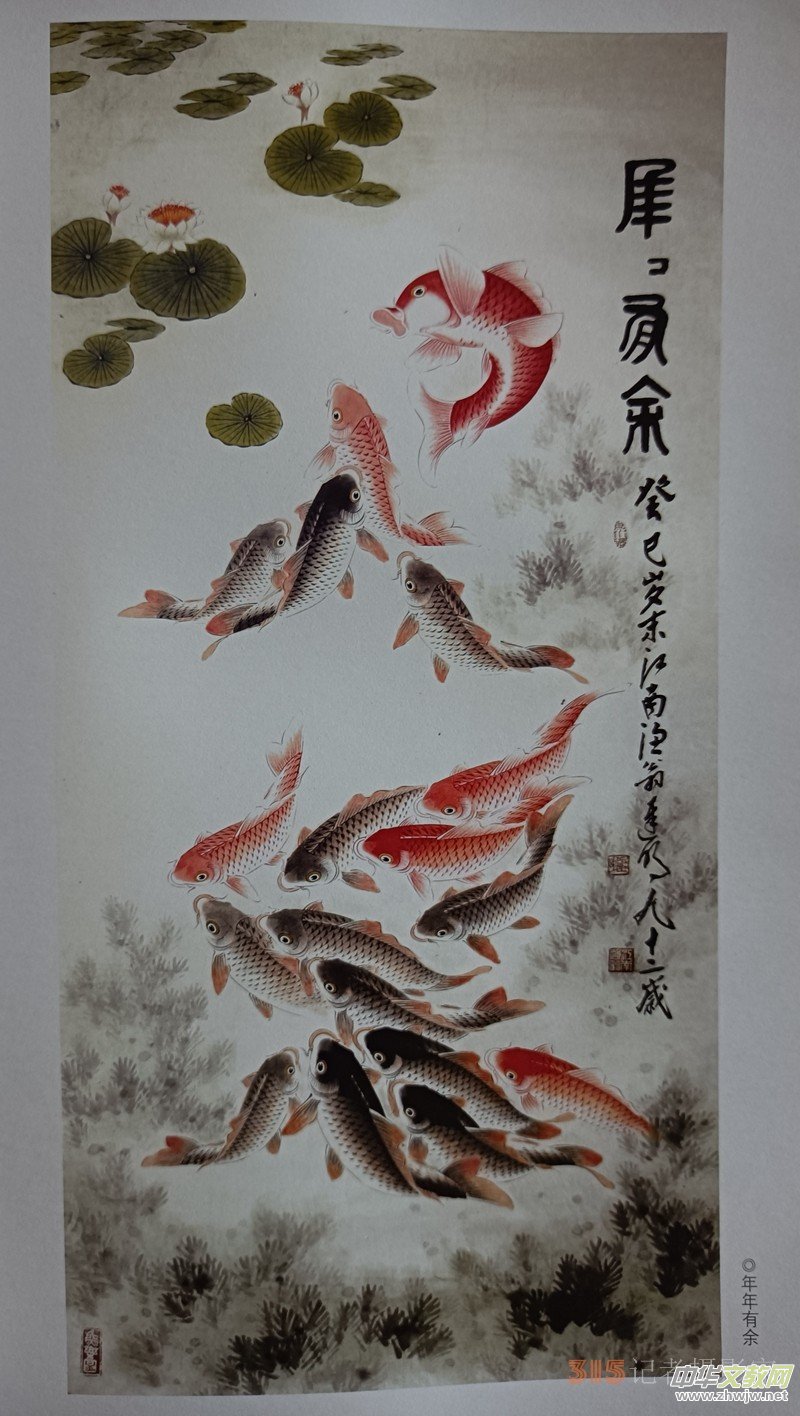 年々有余
癸巳岁末江南渔翁達明九十二歲
◎年年有余
315记者
中华文教网
www.zhwjw.net